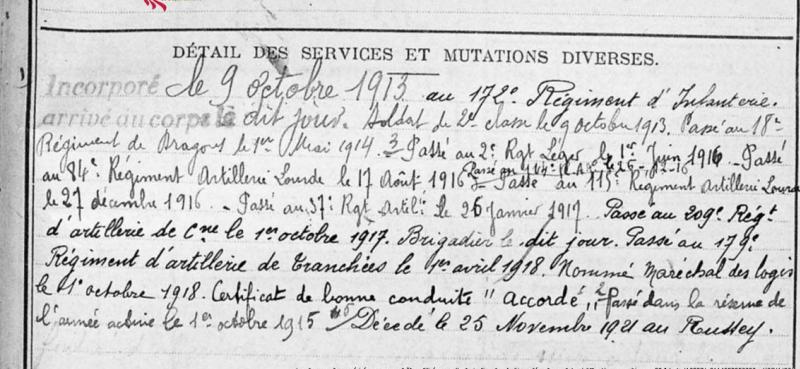 DÉTAIL DES SERVICES ET MUTATIONS DIVERSES.
Incorporé le 9 octobre 1913 au 172e Régiment d'Infanterie.
arrivé au corps le dit jour. Soldat de 2e classe le 9 octobre 1913. Passé au 18e
Régiment de Dragons le 1er Mai 1914. 3 Passé au 2e Rgt Léger le 1er Juin 1916 - Passé
Passé au
au 84e Régiment Artillerie Lourde le 17 Août 1916 - Passé au 115e Régiment Artillerie Lourde
le 27 décembre 1916 - Passé au 37e Rgt Artie le 26 Janvier 1917. Passé au 209e Régt
d'artillerie de Cne le 1er octobre 1917. Brigadier le dit jour. Passé au 179e
Régiment d'artillerie de tranchées le 1er avril 1918. Nommé Maréchal des logis
le 1e octobre 1918. Certificat de bonne conduite "accordé". 2 Passé dans la réserve de
l'armée active le 1er octobre 1915 Décédé le 25 Novembre 1921 au Russey.